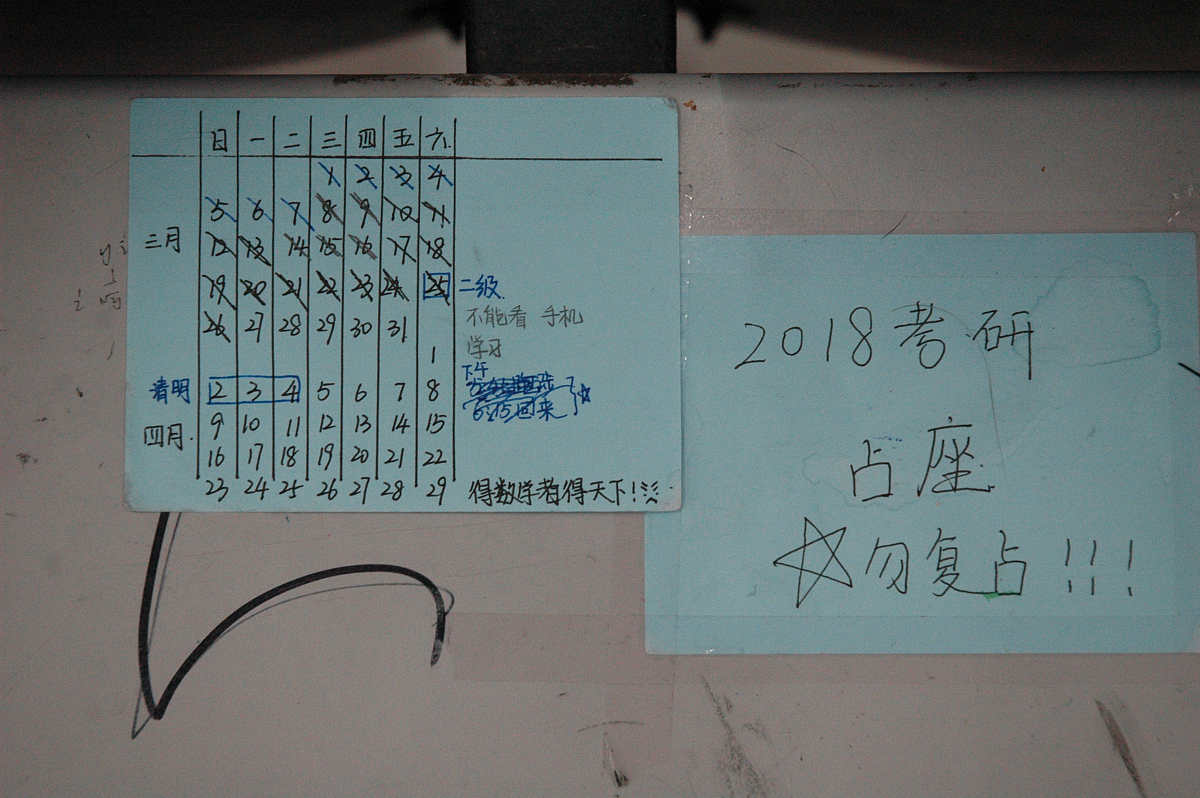 日 一 二 三 四 五 六
1 2 3 4
5 6 7 8 9 10 11
三月 12 13 14 15 16 17 18
19 20 21 22 23 24 25 二级
26 27 28 29 30 31 不能看 手机
1 学习
下午
清明 2 3 4 5 6 7 8
6:15回来
9 10 11 12 13 14 15
四月.
16 17 18 19 20 21 22
23 24 25 26 27 28 29 得数学者得天下!
2018考研
占座
☆勿复占!!!